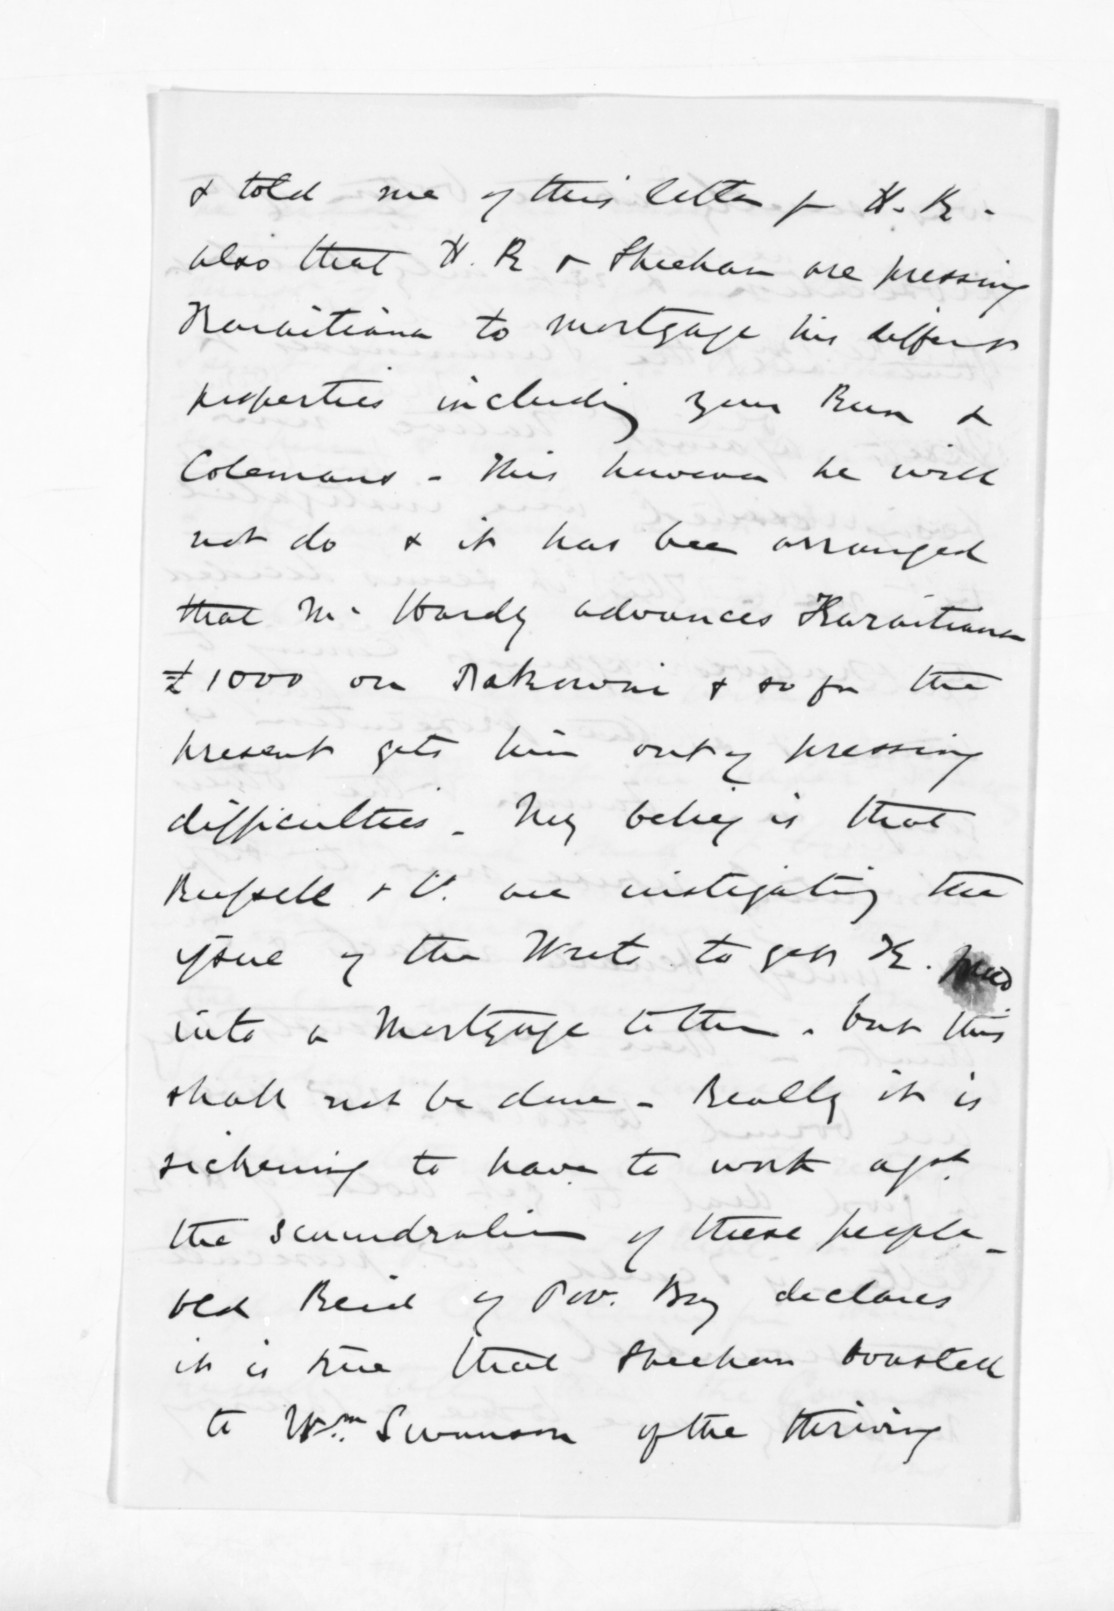 & told me of this letter fr H. R. -
also that H. R & Sheehan are pressing
Karaitiana to mortgage his different
properties including your Run &
Colemans - This however he will
not do & it has been arranged
that Mr Hardy advances Karaitiana
£1000 on & so for the
present gets him out of pressing
difficulties - My belief is that
Russell & V. are instigating the
issue of the Writs to get K.
into a Mortgage to them - but this
shall not be done - Really it is
sickening to have to work agst
the scoundralism of these people -
old Reid of Pov. Bay declares
it is true that Sheehan boasted
to Wm. Swanson of the thriving